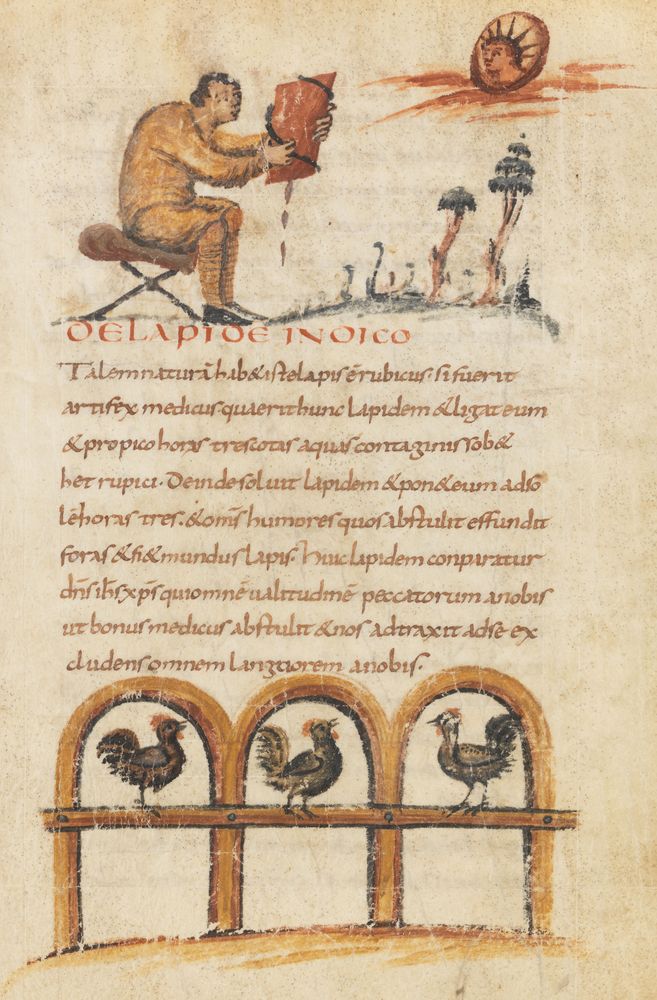 DE LAPIDE INDICO
Talem naturā hab& iste lapis ē rubicus. si fuerit
artifex medicus quaerit hunc lapidem & ligat eum
& propico horas tres totas aquas contaginis sob&
het rupici. Deinde soluit lapidem & pon& eum ad so
lē horas tres. & om̄s humores quos abstulit effundit
foras & fi& mundus lapis. Huic lapidem conparatur
dn̄s ih̄s xp̄s qui omnē ualitudinē peccatorum a nobis
ut bonus medicus abstulit & nos adtraxit ad se ex
cludens omnem languorem a nobis.